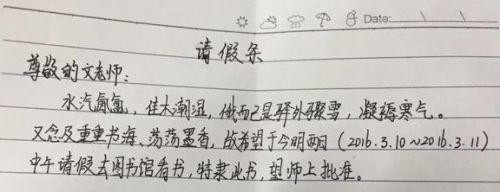 Date:
请假条
尊敬的文老师:
水汽氤氲,佳木潮湿,俄而已是驿外骤雪,凝稀寒气。
又念及重重书海,荡荡墨香,故希望于今明两日(2016.3.10~2016.3.11)
中午请假去图书馆看书,特隶此书,望师上批准。